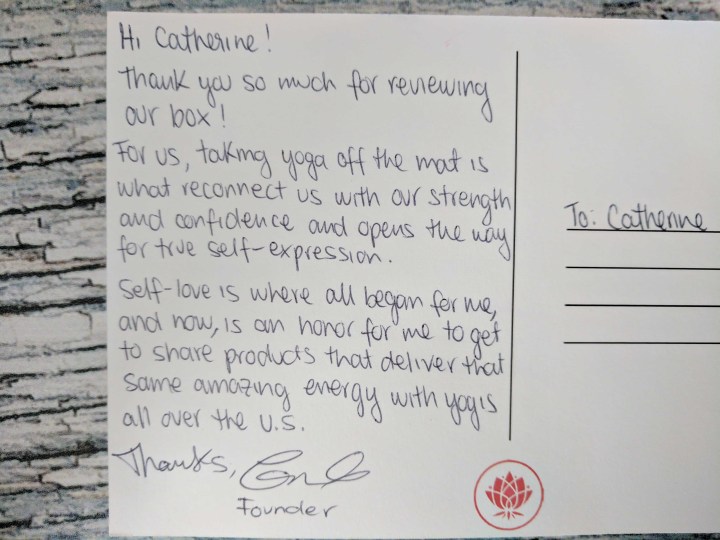 Hi Catherine!
Thank you so much for reviewing
our box!
For us, taking yoga off the mat is
what reconnect us with our strength
and confidence and opens the way
for true self-expression.
Self-love is where all began for me,
and now, is an honor for me to get
to share products that deliver that
same amazing energy with yogis
all over the U.S.
Thanks,
Founder
To: Catherine